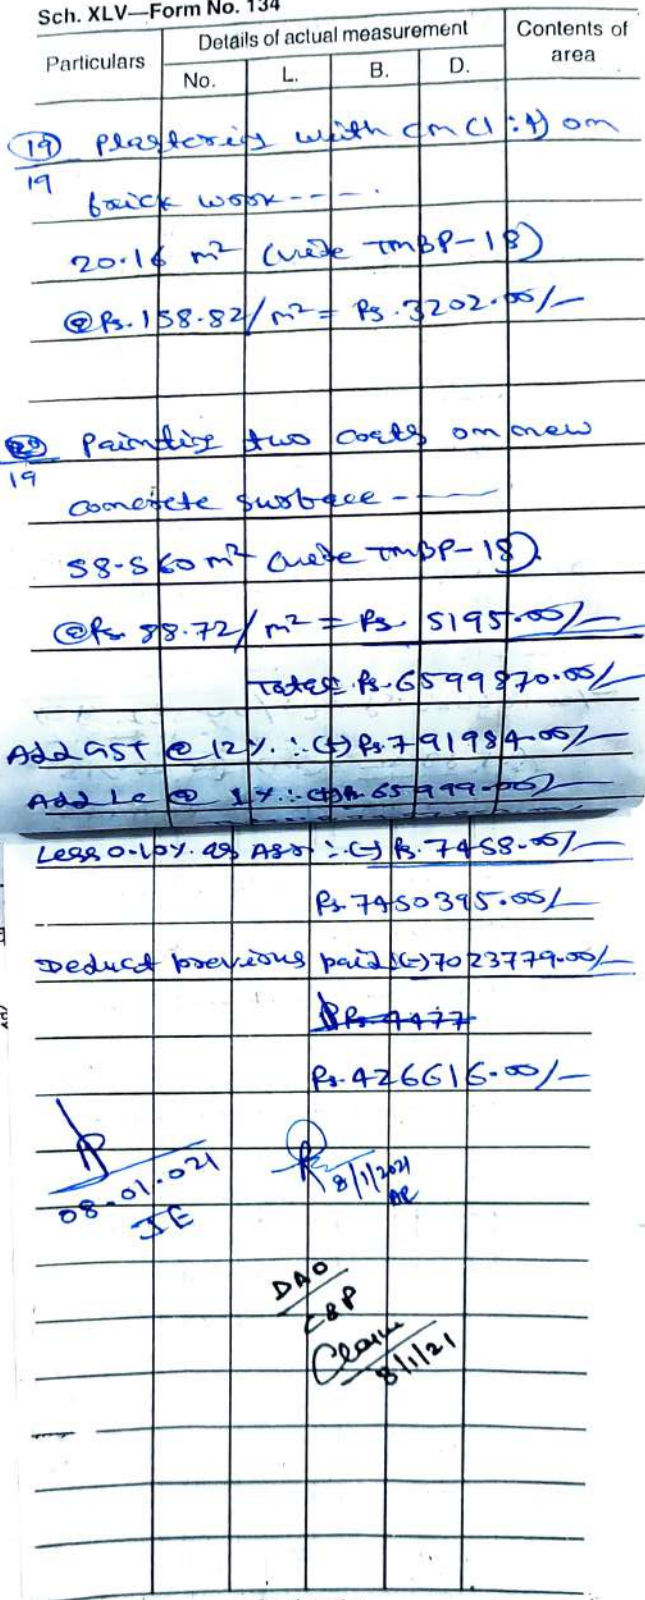 Sch. XLV—Form No. 134
Particulars Details of actual measurement Contents of area
No. L. B. D.
19/19 Plastering with cm (1:4) on
brick work----.
20.16 m² (vide TMBP-18)
@Rs.158.82/m² = Rs.3202.00/-
20/19 Painting two coats on new
concrete surface -——
58.560 m² (vide TMBP-18)
@Rs. 88.72/m² = Rs. 5195.00/-
Total: Rs.6599870.00/-
Add GST @ 12%.:(+) Rs.791984.00/-
Add LC @ 1%.:(+)Rs.65999.00/-
Less 0.10%. as Agr:(-) Rs.7458.00/-
Rs.7450395.00/-
Deduct previous paid(-)7023779.00/-
Rs.426616.00/-
08.01.021
JE
8/1/2021
DAO
8/1/21